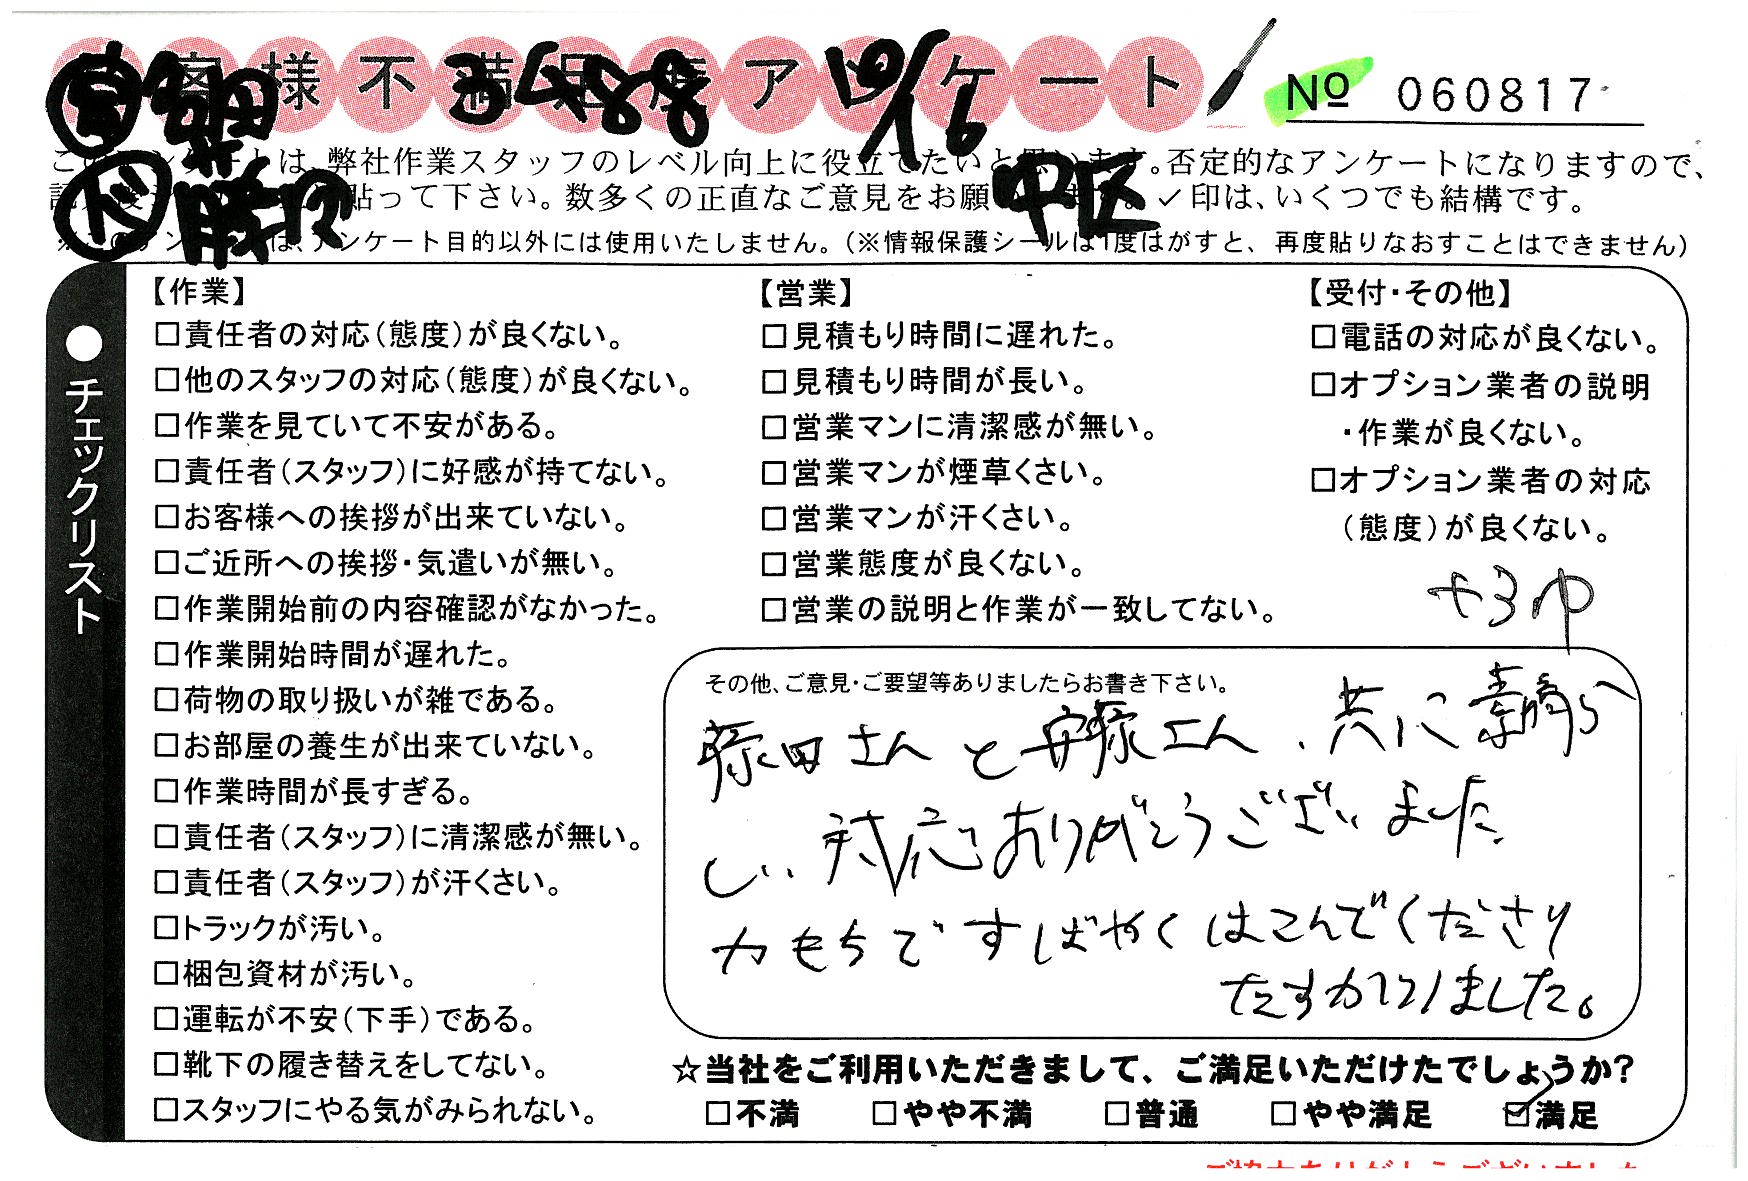 お客様不満足度アンケート
№ 060817
10/6
中区
このアンケートは、弊社作業スタッフのレベル向上に役立てたいと思います。否定的なアンケートになりますので、
貼って下さい。数多くの正直なご意見をお願 ✓印は、いくつでも結構です。
アンケート目的以外には使用いたしません。(※情報保護シールは1度はがすと、再度貼りなおすことはできません)
●チェックリスト
【作業】
□責任者の対応(態度)が良くない。
□他のスタッフの対応(態度)が良くない。
□作業を見ていて不安がある。
□責任者(スタッフ)に好感が持てない。
□お客様への挨拶が出来ていない。
□ご近所への挨拶・気遣いが無い。
□作業開始前の内容確認がなかった。
□作業開始時間が遅れた。
□荷物の取り扱いが雑である。
□お部屋の養生が出来ていない。
□作業時間が長すぎる。
□責任者(スタッフ)に清潔感が無い。
□責任者(スタッフ)が汗くさい。
□トラックが汚い。
□梱包資材が汚い。
□運転が不安(下手)である。
□靴下の履き替えをしてない。
□スタッフにやる気がみられない。
【営業】
□見積もり時間に遅れた。
□見積もり時間が長い。
□営業マンに清潔感が無い。
□営業マンが煙草くさい。
□営業マンが汗くさい。
□営業態度が良くない。
□営業の説明と作業が一致してない。
【受付・その他】
□電話の対応が良くない。
□オプション業者の説明
・作業が良くない。
□オプション業者の対応
(態度)が良くない。
その他、ご意見・ご要望等ありましたらお書き下さい。
藤田さんと安藤さん、共に素晴ら
しい対応ありがとうございました
力もちですばやくはこんでくださり
たすかりました。
☆当社をご利用いただきまして、ご満足いただけたでしょうか?
□不満 □やや不満 □普通 □やや満足 ☑満足
ご協力ありがとうございました